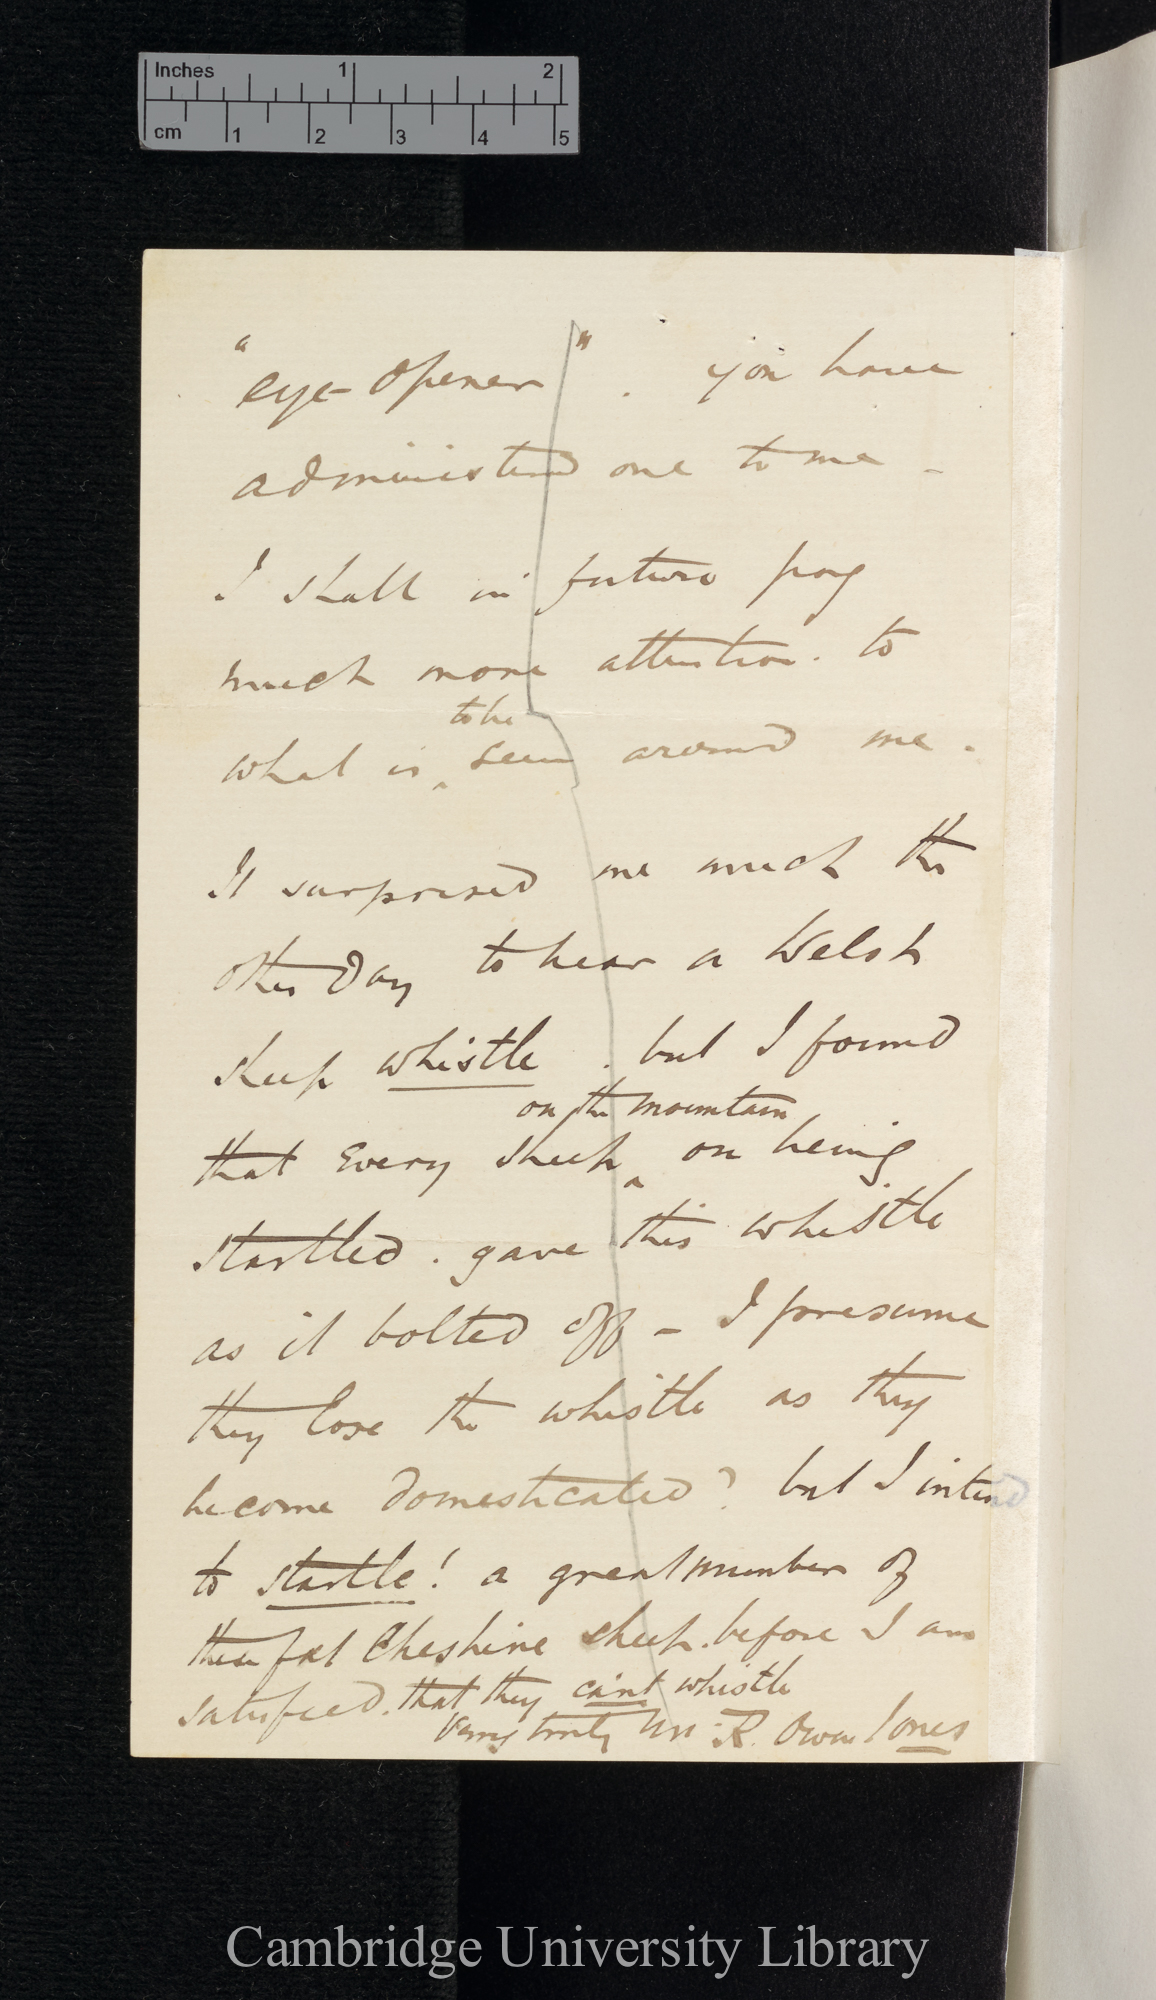 Inches 1 2
cm 1 2 3 4 5
"eye-opener". you have
administered one to me -
I shall in future pay
much more attention. to
to be
what is ‸ seen around me.
It surprised me much the
other day to hear a Welsh
sheep whistle. but I found
on the mountain
that every sheep ‸ on being
startled. gave this whistle
as it bolted off - I presume
they lose the whistle as they
become domesticated? but I intend
to startle! a great number of
these fat Cheshire sheep. before I am
satisfied. that they can't whistle
Very truly R. Owen Jones
Cambridge University Library